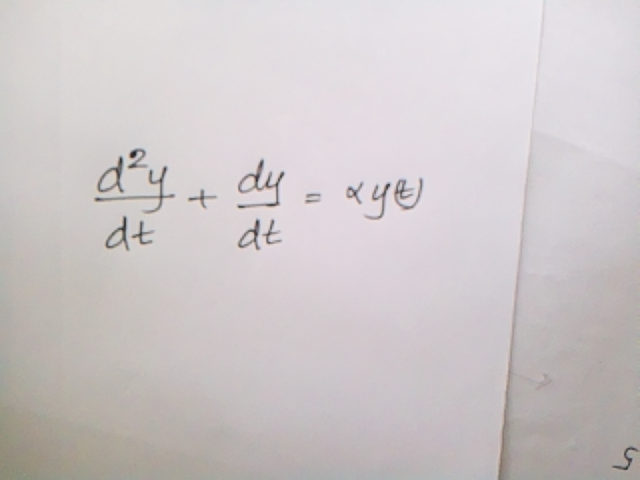 d²y/dt + dy/dt = αy(t)
5